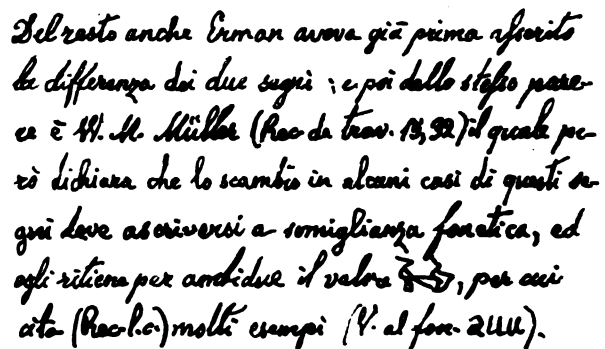 Del resto anche Erman aveva già prima asserito
la differenza dei due segni; e poi dello stesso pare-
re è W. M. Müller (Rec de trav. 13, 92) il quale pe-
rò dichiara che lo scambio in alcuni casi di questi se-
gni deve ascriversi a somiglianza fonetica, ed
egli ritiene per ambidue il valore, per cui
cita (Rec. l. c.) molti esempi (V. al fon.